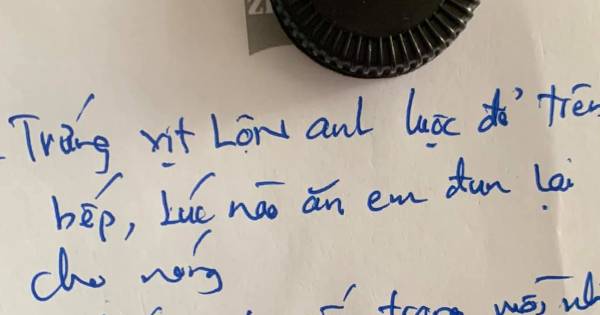 - Trứng vịt Lộn anh luộc để trên
bếp, Lúc nào ăn em đun lại
cho nóng
trong